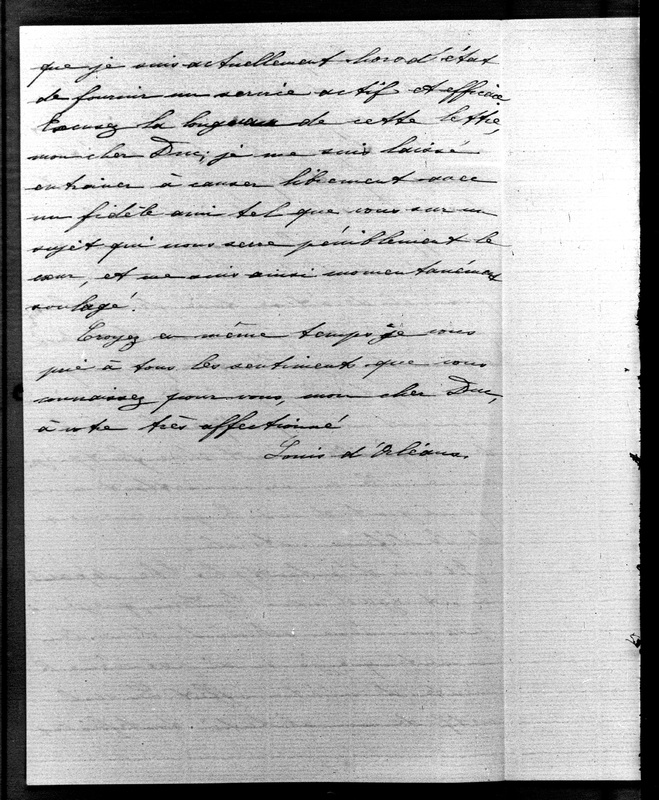 que je suis actuellement hors d'état
de fournir un service actif et efficace
Excusez la longueur de cette lettre,
mon cher Duc, je me suis laissé
entrainer à causer librement avec
un fidèle ami tel que vous sur un
sujet qui nous serre péniblement le
cœur, et me suis ainsi momentanément
soulagé.
Croyez en même temps je vous
prie à tous les sentiments que vous
connaissez pour vous, mon cher Duc,
à votre très affectionné
Louis d'Orléans.